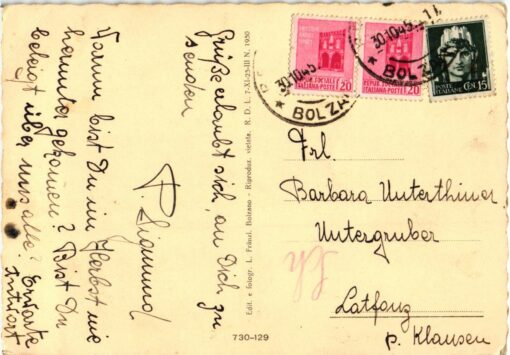 Grüße erlaubt sich, an Dich zu
senden
P. Sigmund
Warum bist Du im Herbst nie
herunter gekommen? Bist Du
beleigt über uns alle? Erwarte
Antwort
Edit. e fotogr. L. Fränzl, Bolzano - Riproduz. vietata. R. D. L. 7-XI-25-III N. 1950
730-129
SOCIALE
ITALIANA-POSTE 20
REPUB. SOCIALE
ITALIANA-POSTE 20
POSTE
ITALIANE
CEN. 15
30.10.45
BOLZA
30.10.45
BOLZA
Frl.
Barbara Unterthiner
Untergruber
Latfonz
p. Klausen